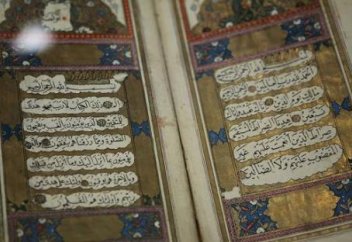 بسم الله الرحمن الرحيم
الحمد لله رب العالمين الرحمن
الرحيم مالك يوم الدين اياك نعبد
واياك نستعين اهدنا الصراط المستقيم
صراط الذين انعمت عليهم غير
المغضوب عليهم ولا الضالين
بسم الله الرحمن الرحيم
الم ذلك الكتاب لا ريب فيه هدى
للمتقين الذين يؤمنون بالغيب ويقيمون
الصلوة ومما رزقناهم ينفقون والذين
يؤمنون بما انزل اليك وما انزل من قبلك
وبالاخرة هم يوقنون اولئك على هدى من
ربهم واولئك هم المفلحون